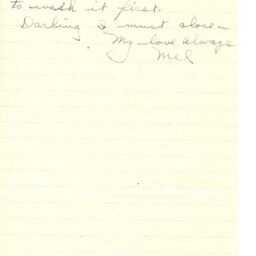 to wash it first.
Darling I must close –
My love always
Mel